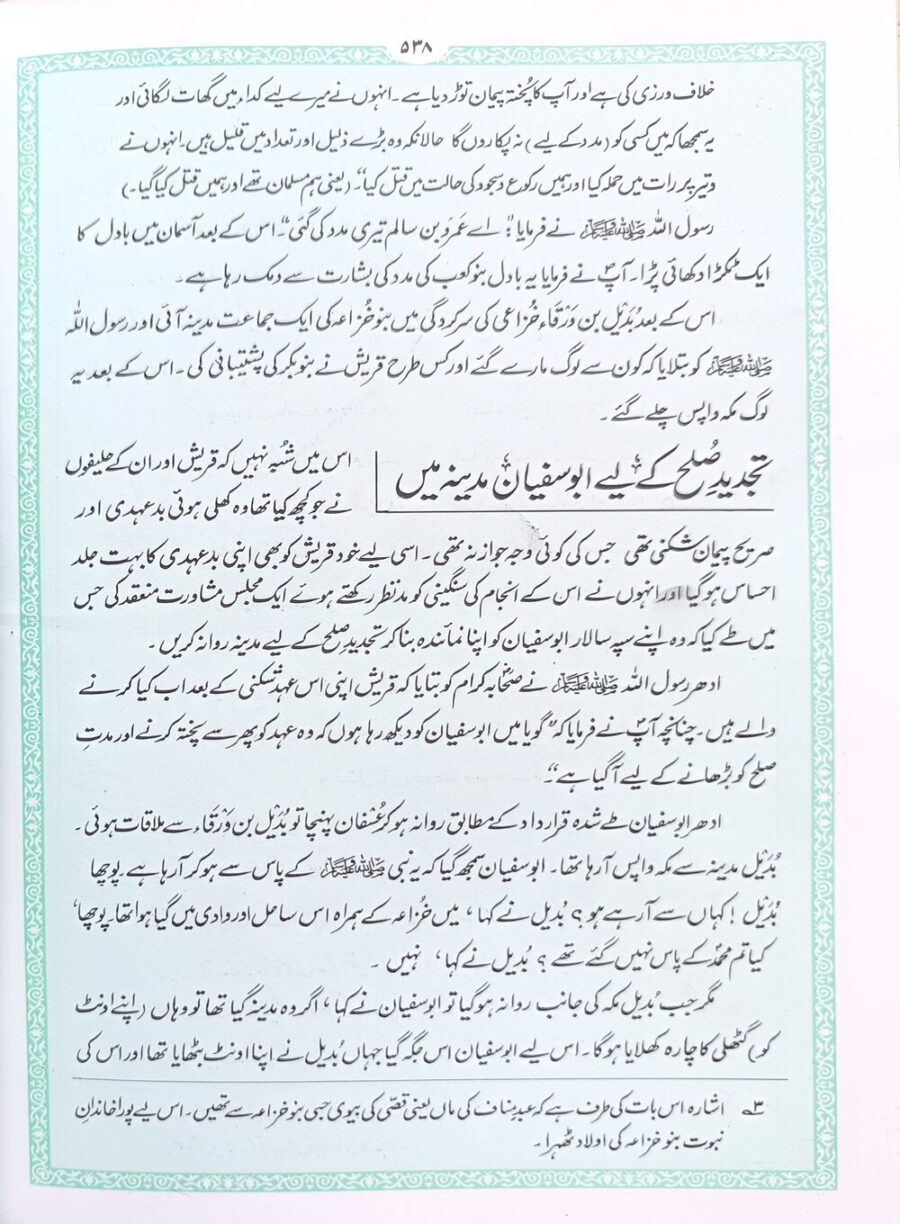 ۵۳۸
خلاف ورزی کی ہے اور آپ کا پُختہ پیمان توڑ دیا ہے۔ انہوں نے میرے لیے کداء میں گھات لگائی اور
یہ سمجھا کہ میں کسی کو (مدد کے لیے) نہ پکاروں گا حالانکہ وہ بڑے ذلیل اور تعداد میں قلیل ہیں۔ انہوں نے
وتیر پر رات میں حملہ کیا اور ہمیں رکوع و سجود کی حالت میں قتل کیا"۔ (یعنی ہم مسلمان تھے اور ہمیں قتل کیا گیا۔)
رسول اللہ ﷺ نے فرمایا: "اے عَمرو بن سالم تیری مدد کی گئی"۔ اس کے بعد آسمان میں بادل کا
ایک ٹکڑا دکھائی پڑا۔ آپؐ نے فرمایا یہ بادل بنو کعب کی مدد کی بشارت سے دمک رہا ہے۔
اس کے بعد بُدَیل بن وَرْقاء خُزاعی کی سرکردگی میں بنو خُزاعہ کی ایک جماعت مدینہ آئی اور رسول اللہ
ﷺ کو بتلایا کہ کون سے لوگ مارے گئے اور کس طرح قریش نے بنو بکر کی پشتیبانی کی۔ اس کے بعد یہ
لوگ مکہ واپس چلے گئے۔
تجدیدِ صُلح کے لیے ابو سفیان مدینہ میں
اس میں شُبہ نہیں کہ قریش اور ان کے حلیفوں
نے جو کچھ کیا تھا وہ کھلی ہوئی بدعہدی اور
صریح پیمان شکنی تھی جس کی کوئی وجہ جواز نہ تھی۔ اسی لیے خود قریش کو بھی اپنی بدعہدی کا بہت جلد
احساس ہو گیا اور انہوں نے اس کے انجام کی سنگینی کو مد نظر رکھتے ہوئے ایک مجلس مشاورت منعقد کی جس
میں طے کیا کہ وہ اپنے سپہ سالار ابو سفیان کو اپنا نمائندہ بنا کر تجدیدِ صلح کے لیے مدینہ روانہ کریں۔
ادھر رسول اللہ ﷺ نے صحابہ کرامؓ کو بتایا کہ قریش اپنی اس عہد شکنی کے بعد اب کیا کرنے
والے ہیں۔ چنانچہ آپؐ نے فرمایا کہ "گویا میں ابو سفیان کو دیکھ رہا ہوں کہ وہ عہد کو پھر سے پختہ کرنے اور مدتِ
صلح کو بڑھانے کے لیے آ گیا ہے"۔
ادھر ابو سفیان طے شدہ قرارداد کے مطابق روانہ ہو کر عُسْفان پہنچا تو بُدَیل بن وَرْقاء سے ملاقات ہوئی۔
بُدَیل مدینہ سے مکہ واپس آ رہا تھا۔ ابو سفیان سمجھ گیا کہ یہ نبی ﷺ کے پاس سے ہو کر آ رہا ہے۔ پوچھا
بُدَیل! کہاں سے آ رہے ہو؟ بُدیل نے کہا، میں خُزاعہ کے ہمراہ اس ساحل اور وادی میں گیا ہوا تھا۔ پوچھا،
کیا تم محمدؐ کے پاس نہیں گئے تھے؟ بُدیل نے کہا، نہیں۔
مگر جب بُدیل مکہ کی جانب روانہ ہو گیا تو ابو سفیان نے کہا، اگر وہ مدینہ گیا تھا تو وہاں (اپنے اونٹ
کو) گٹھلی کا چارہ کھلایا ہو گا۔ اس لیے ابو سفیان اس جگہ گیا جہاں بُدیل نے اپنا اونٹ بٹھایا تھا اور اس کی
۳ اشارہ اس بات کی طرف ہے کہ عبد مناف کی ماں یعنی قصی کی بیوی حبی بنو خزاعہ سے تھیں۔ اس لیے پورا خاندانِ
نبوت بنو خزاعہ کی اولاد ٹھہرا۔